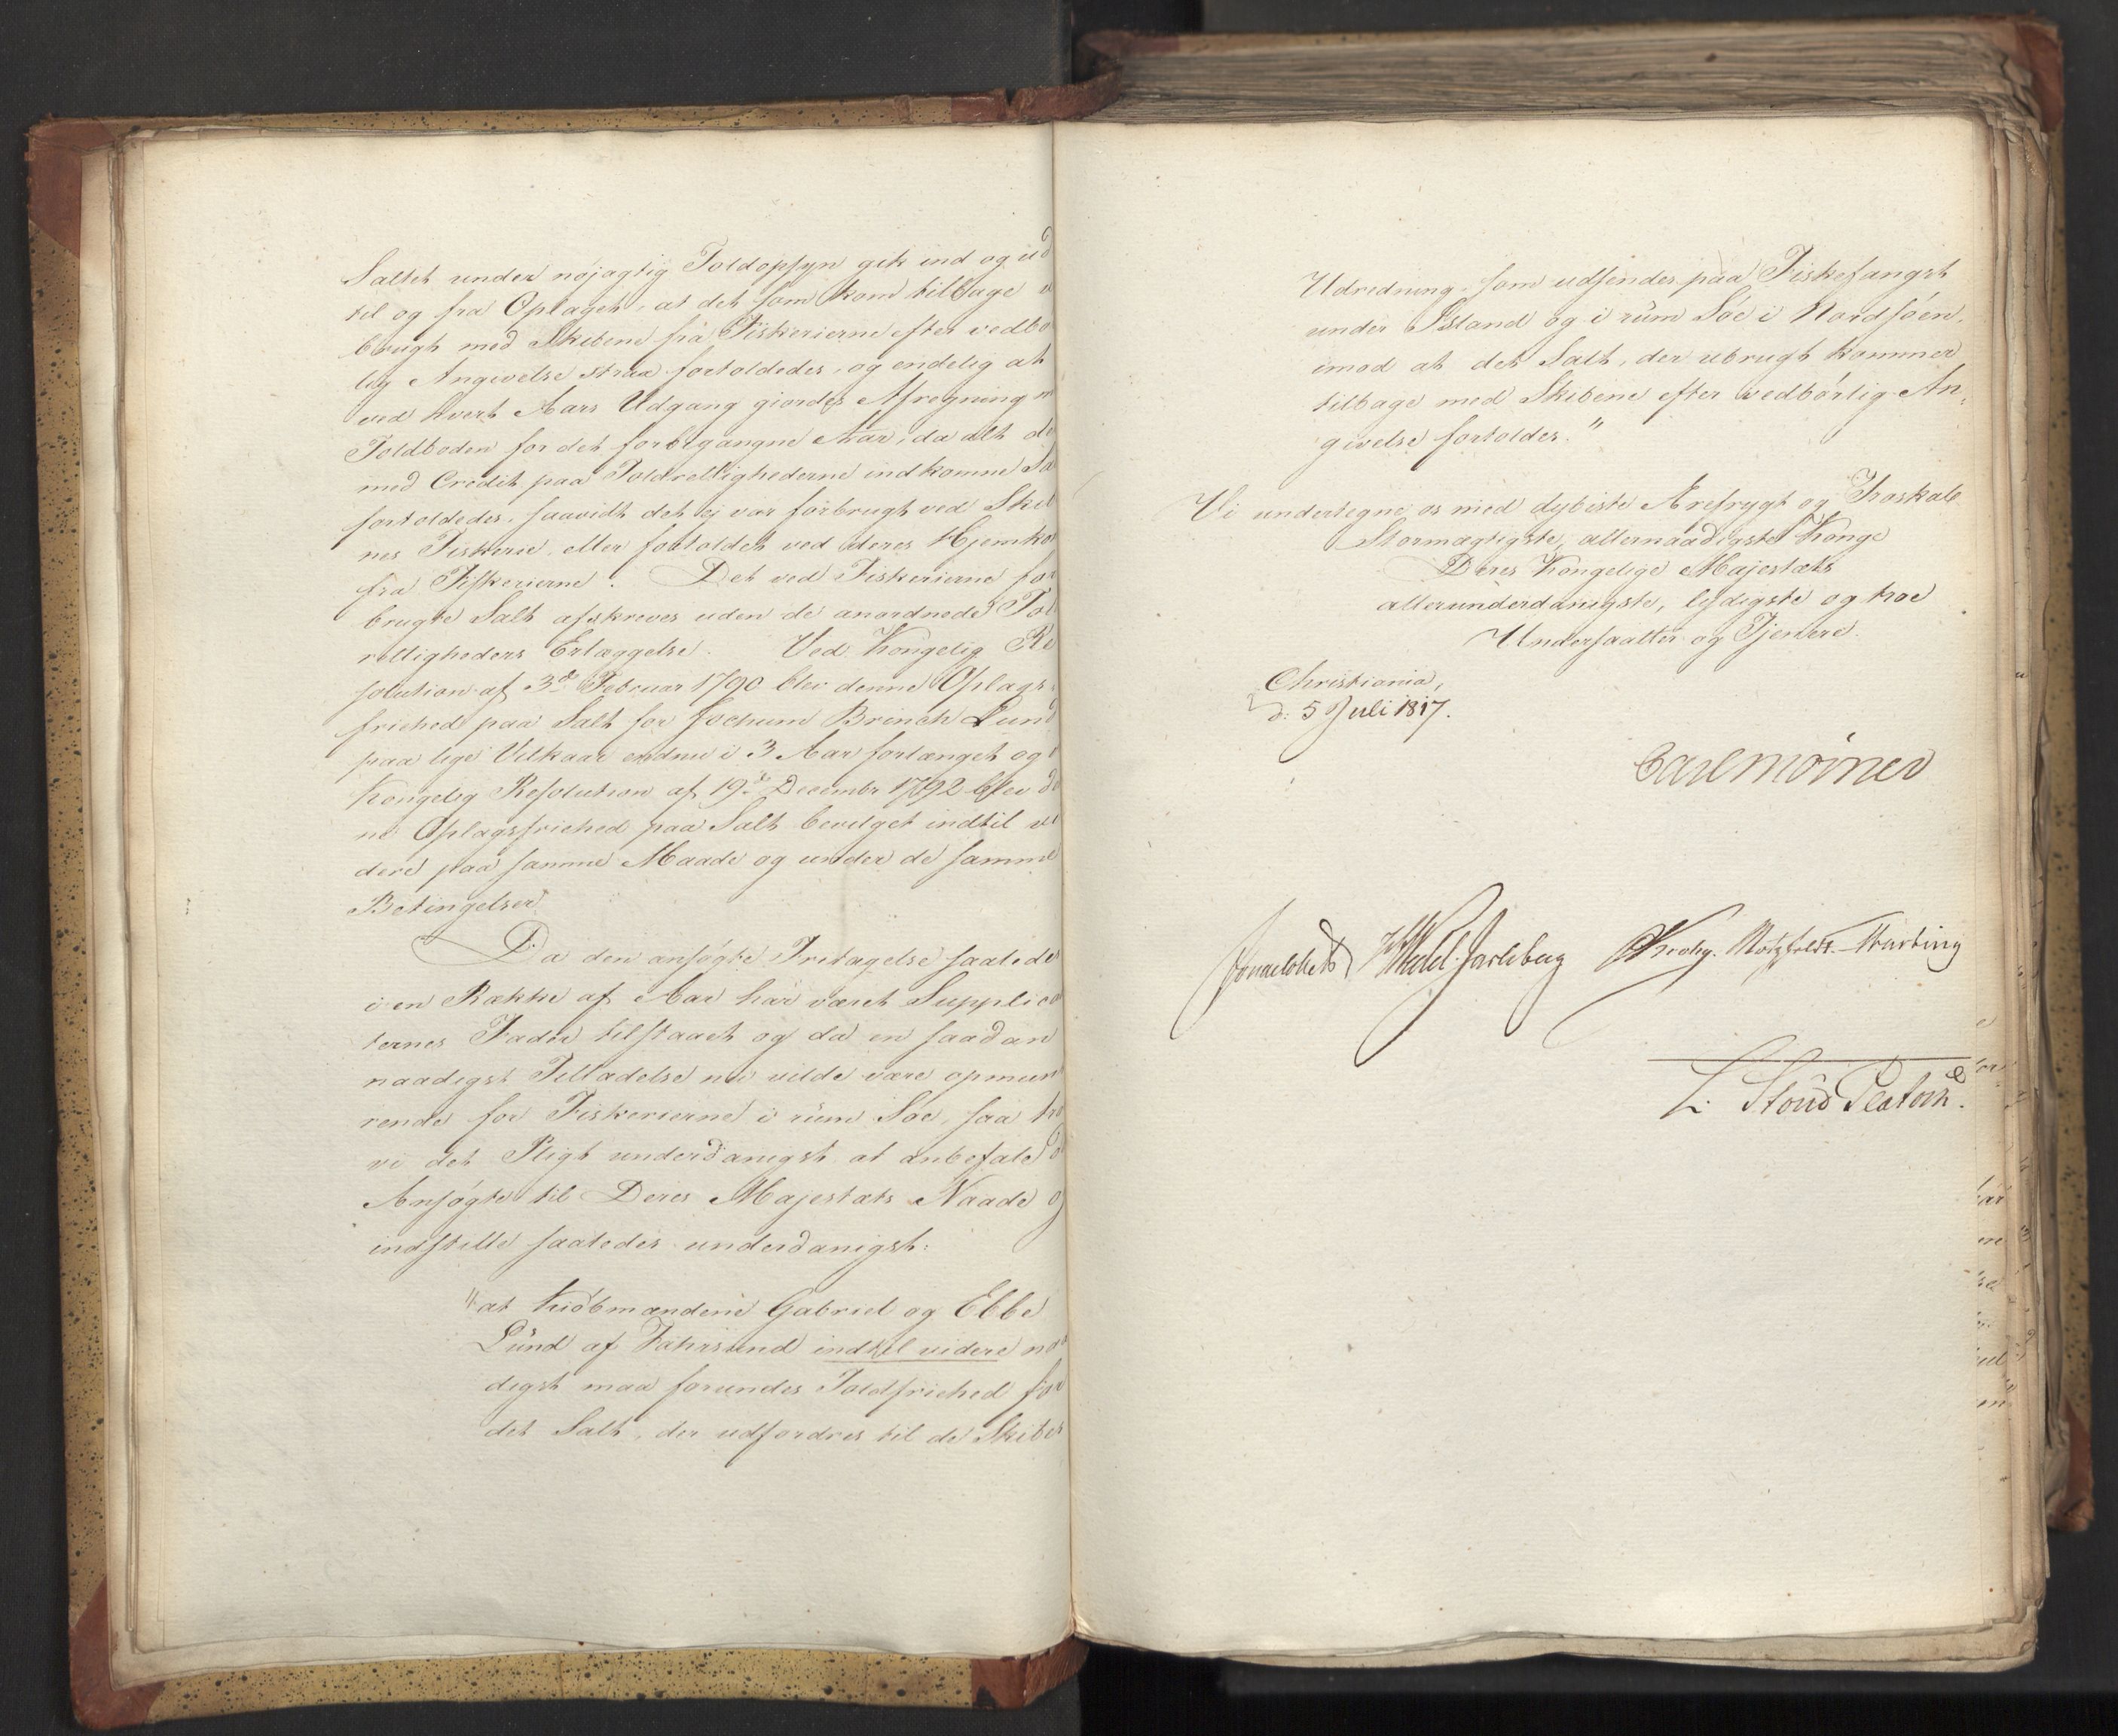 Saltet under nøjagtig Toldopsyn gik ind og ud
til og fra Oplaget, at det som kom tilbage u
brugt med Skibene fra Fiskerierne efter vedbø
lig Angivelse straa fortoldedes, og endelig at
ved hvert Aars Udgang giordes Afregning m
Toldboden for det forbigangne Aar, da alt de
med Credit paa Toldrettighederne indkomne Sa
fortoldedes, saavidt det ej var forbrugt ved Skib
nes Fiskerie, eller fortoldet ved deres Hjemko
fra Fiskerierne. Det ved Fiskerierne for
brugte Salt afskreves uden de anordnede Tol
rettigheders Erlæggelse. Ved Kongelig Re
solution af 3de Februar 1790 blev denne Oplags
friehed paa Salt for Jochum Brinch Lund
paa lige Vilkaar endnu i 3 Aar forlænget og v
Kongelig Resolution af 19de Decembr 1792 blev de
ne Oplagsfriehed paa Salt bevilget indtil vi
dere paa samme Maade og under de samme
Betingelser.
Da den ansøgte Fritagelse saaledes
i en Række af Aar har været Supplica
ternes Fader tilstaaet og da en saadan
naadigst Tilladelse nu vilde være opmun
rende for Fiskerierne i rum Søe, saa tro
vi det Pligt underdanigst at anbefale d
Ansøgte til Deres Majestæts Naade og
indstille saaledes underdanigst:
"at Kiøbmændene Gabriel og Ebbe
Lund af Fahrsund indtil videre naa
digst maa forundes Toldfriehed for
det Salt, der udfordres til de Skibes
Udredning, som udsendes paa Fiskefangst
under Island og i rum Søe i Nordsøen,
imod at det Salt, der ubrugt kommer
tilbage med Skibene efter vedbørlig An,
givelse fortoldes."
Vi undertegne os med dybeste Ærefrygt og Troskab
Stormægtigste, allernaadigste Konge
Deres Kongelige Majestæts
allerunderdanigste, lydigste og troe
Undersaatter og Tjenere.
Christiania,
d: 5 Juli 1817.
Carl Mörner
Sommelhielm Wedel-Jarlsberg Krohg. Motzfeldt.
L: Stoud Platou.